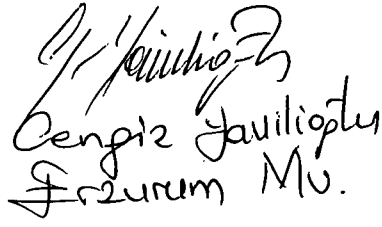 Cengiz Yavilioğlu
Erzurum Mv.